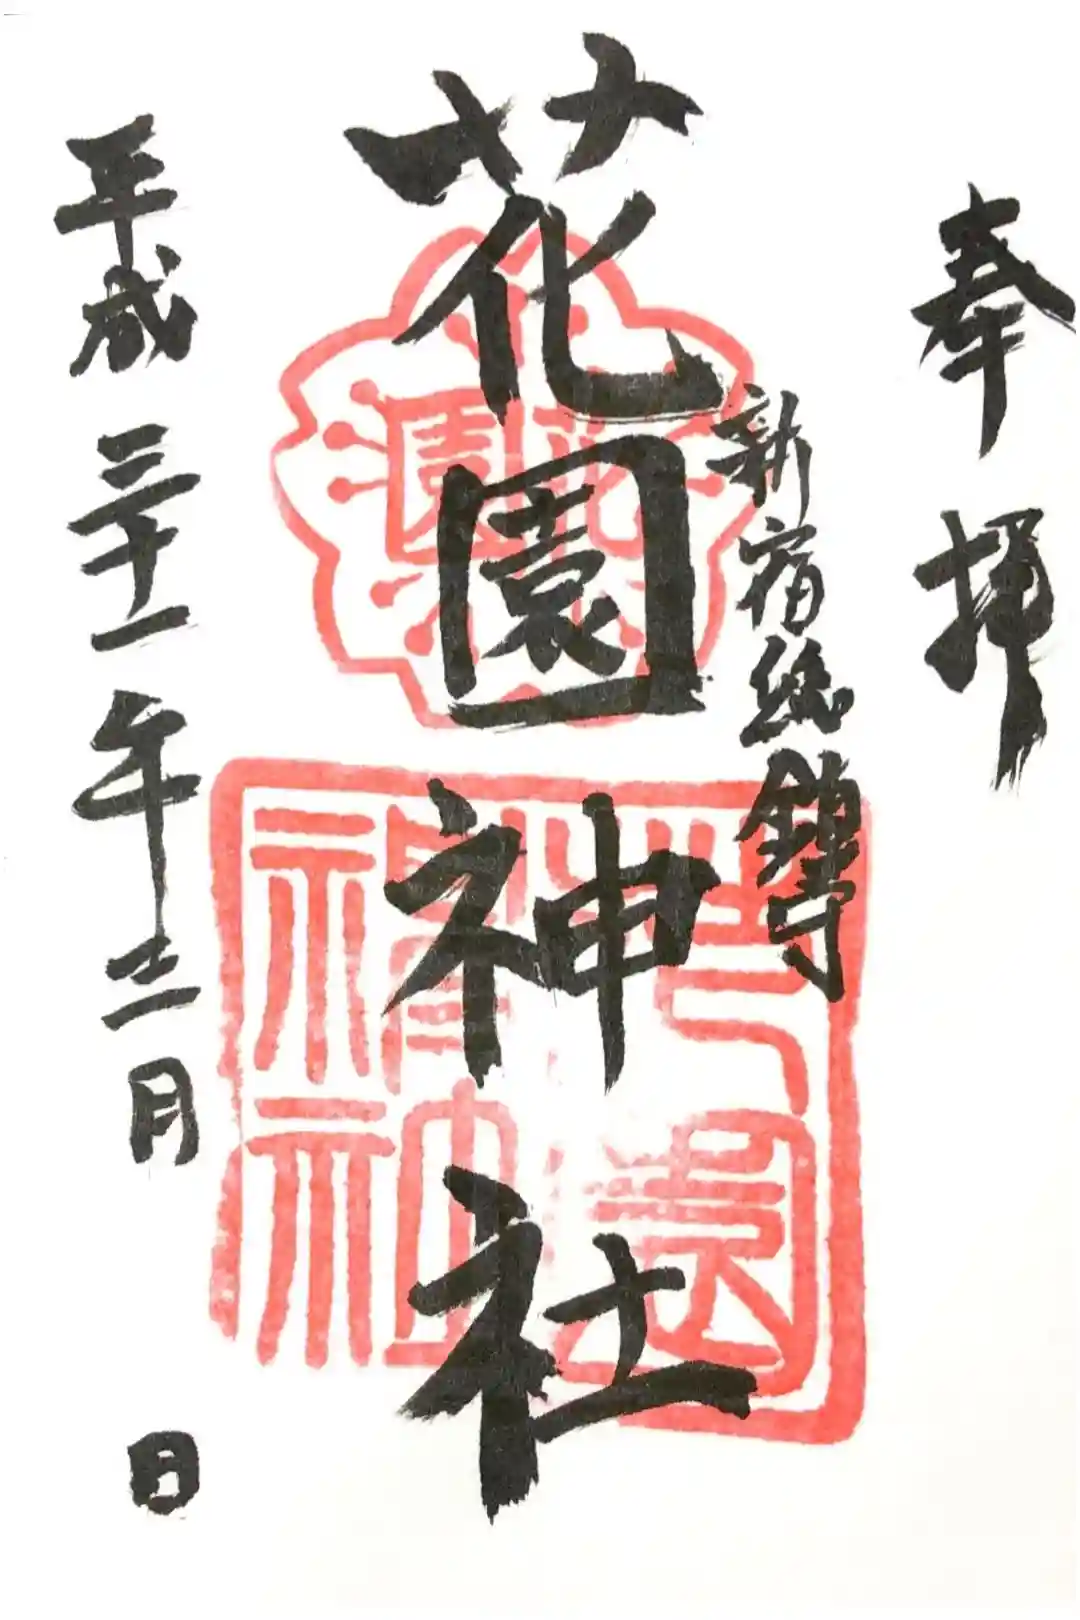 奉拝
新宿総鎮守
花園神社
平成三十一年三月 日
花園